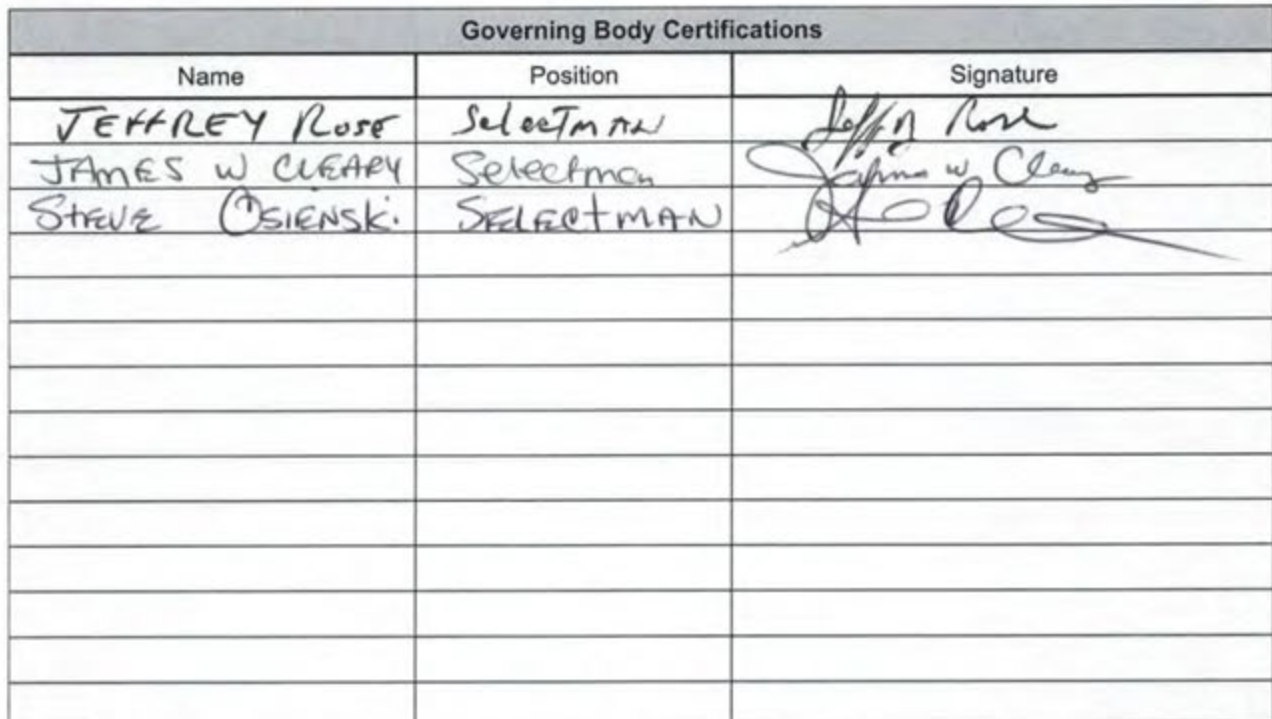 Governing Body Certifications
Name Position Signature
JEFFREY Rose SelecTmAN Jeffrey Rose
JAMES W CLEARY Selectman James W Cleary
STEVE OSIENSKi SELECTMAN